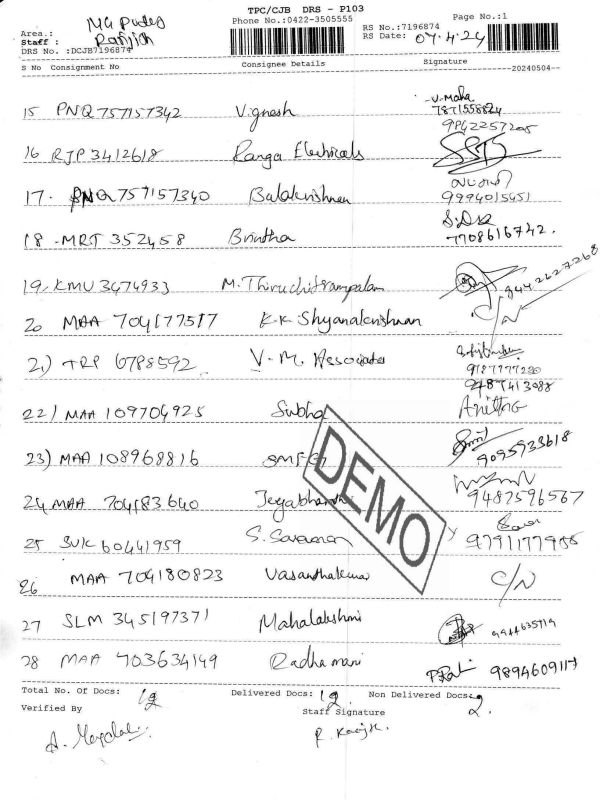 TPC/CJB DRS - P103
Phone No.:0422-3505555
Page No.:1
Area.:
Staff : Ranjith
DRS No. :DCJB7196874
RS No.:7196874
RS Date: 07.4.24
S No Consignment No Consignee Details Signature
--20240504--
15 PNQ 757157342 Vignesh V. Maha
7871558824
16 RJP 3412618 Ranga Electricals
17. PNQ 757157340 Balakrishnan
9994015451
18 -MRT 352458 Brintha
7708616742.
19. KMU 3474933 M. Thiruchitrampalam 9442627268
20 MAA 704177517 K.K. Shyamalakrishnan C/N
21) TRP 6788592 V. M. Associates
22) MAA 109704925 Subha Anitha
23) MAA 108968816 SMFG 9095933618
24 MAA 704183640 9487596567
25 SUK 60441959 S. Saravanan
26 MAA 704180823 Vasanthakumar C/N
27 SLM 345197371 Mahalakshmi
28 MAA 703634149 Radha mani 9894609117
DEMO
Total No. Of Docs: 12 Delivered Docs: 12 Non Delivered Docs: 2.
Verified By Staff Signature